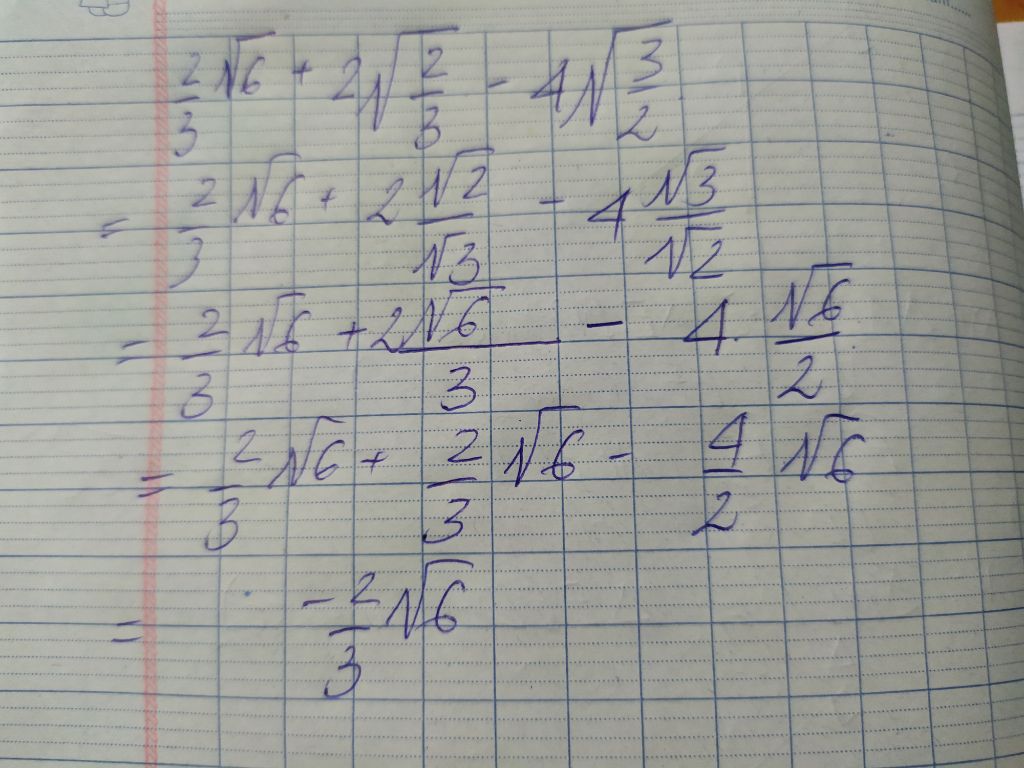 2/3 √6 + 2√(2/3) - 4√(3/2)
= 2/3 √6 + 2 √2/√3 - 4 √3/√2
= 2/3 √6 + 2√6/3 - 4. √6/2
= 2/3 √6 + 2/3 √6 - 4/2 √6
= -2/3 √6